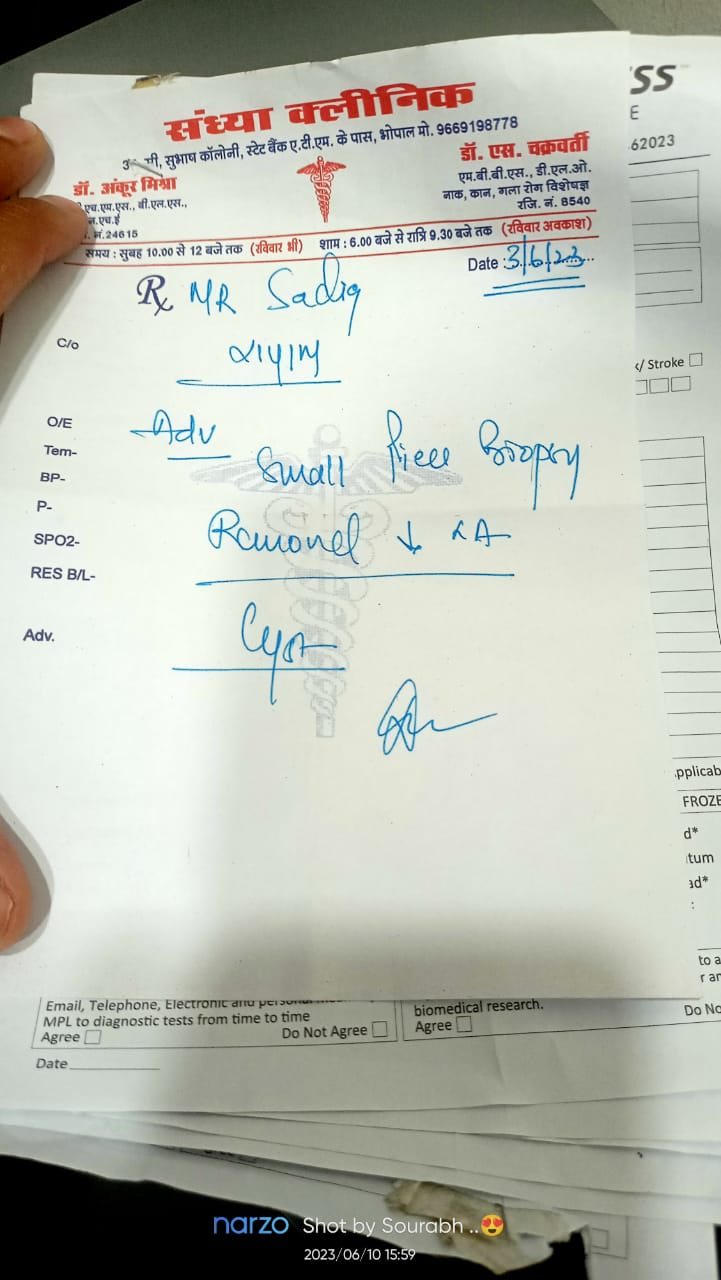 संध्या क्लीनिक
सुभाष कॉलोनी, स्टेट बैंक ए.टी.एम. के पास, भोपाल मो. 9669198778
डॉ. अंकूर मिश्रा
एच.एम.एस., बी.एल.एस.,
न.एच.ई
नं.24615
डॉ. एस. चक्रवर्ती
एम.बी.बी.एस., डी.एल.ओ.
नाक, कान, गला रोग विशेषज्ञ
रजि. नं. 8540
समय : सुबह 10.00 से 12 बजे तक (रविवार भी) शाम : 6.00 बजे से रात्रि 9.30 बजे तक (रविवार अवकाश)
Date : 3/6/23
Rx MR Sadiq
C/o
O/E
Adv
Tem-
Small Piece Biopsy
BP-
P-
SPO2-
Removed ↓ LA
RES B/L-
Adv.
Cyst
SS
E
62023
/ Stroke
pplicab
FROZE
d*
tum
ad*
:
to a
r an
Email, Telephone, Electronic and
MPL to diagnostic tests from time to time
Agree Do Not Agree
biomedical research.
Agree
Do No
Date
narzo Shot by Sourabh ..😍
2023/06/10 15:59